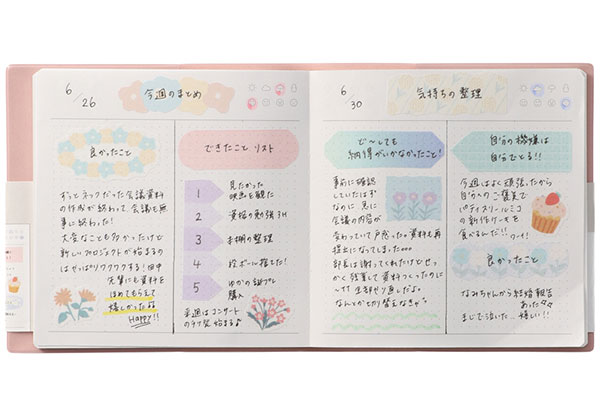 6
26
今週のまとめ
良かったこと
ずっとネックだった会議資料
の作成が終わって、会議も無
事に終わった!
大変なことも多かったけど
新しいプロジェクトが始まるの
はやっぱりワクワクする!田中
先輩にも資料を
ほめてもらえて
嬉しかった
Happy!!
できたこと リスト
1 見たかった
映画を観た
2 資格の勉強 3H
3 本棚の整理
4 段ボール捨てた!
5 ゆかの誕プレ
購入
来週はコンサート
始まる♪
6
30
気持ちの整理
ど〜しても
納得がいかなかったこと!
事前に確認
していたはず
なのに 急に
会議の内容が
変わっていて戸惑った。資料も再
提出になってしまった
部長は謝ってくれたけど せっ
かく残業して資料つくったのに
〜!! 全部やり直しだよ
なんとか切り替えなきゃ
自分の機嫌は
自分でとる!!
今週はよく頑張ったから
自分へのご褒美で
パティスリールミコ
の新作ケーキを
食べるんだ!!
ワーイ!
良かったこと
なみちゃんから結婚報告
あった
まじで泣いた…嬉しい!!